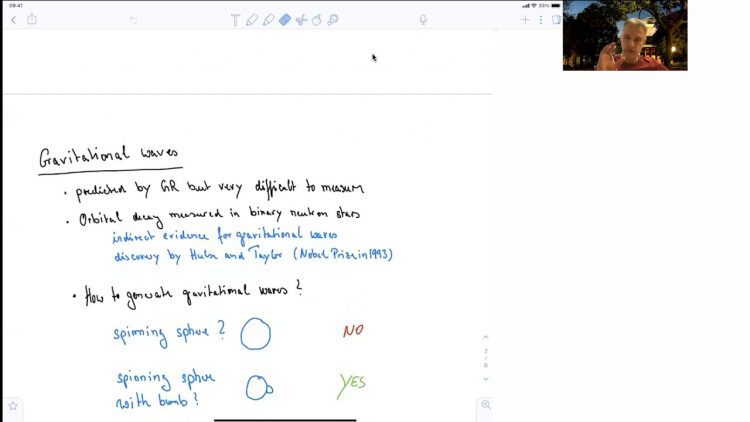 09:41
33%
T
Gravitational waves
• predicted by GR but very difficult to measure
• Orbital decay measured in binary neutron stars
indirect evidence for gravitational waves
discovery by Hulse and Taylor (Nobel Prize in 1993)
• How to generate gravitational waves?
spinning sphere? NO
spinning sphere YES
with bumb?